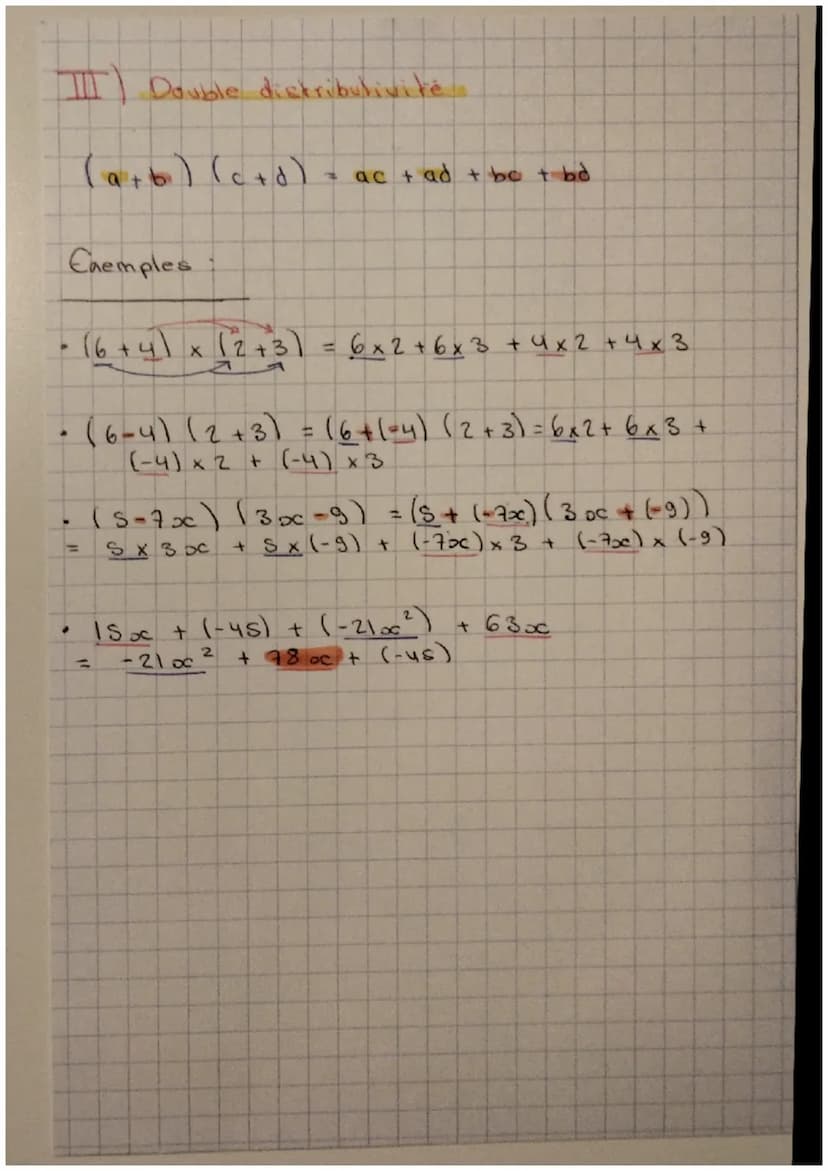 III) Double distributivité
(a+b) (c+d) = ac + ad + bc + bd
Exemples :
• (6+4) x (2+3) = 6x2 + 6x3 + 4x2 + 4x3
• (6-4) (2+3) = (6+(-4) (2+3) = 6x2 + 6x3 +
(-4) x 2 + (-4) x 3
• (5-7x) (3x-9) = (5 + (-7x) (3x + (-9))
= 5 x 3x + 5 x (-9) + (-7x) x 3 + (-7x) x (-9)
• 15x + (-45) + (-21x²) + 63x
= -21x² + 78x + (-45)